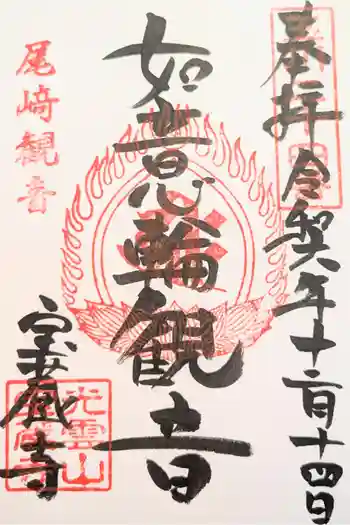 奉拝 令和六年十二月十四日
如意輪観音
尾﨑観音
宝蔵寺
光雲山